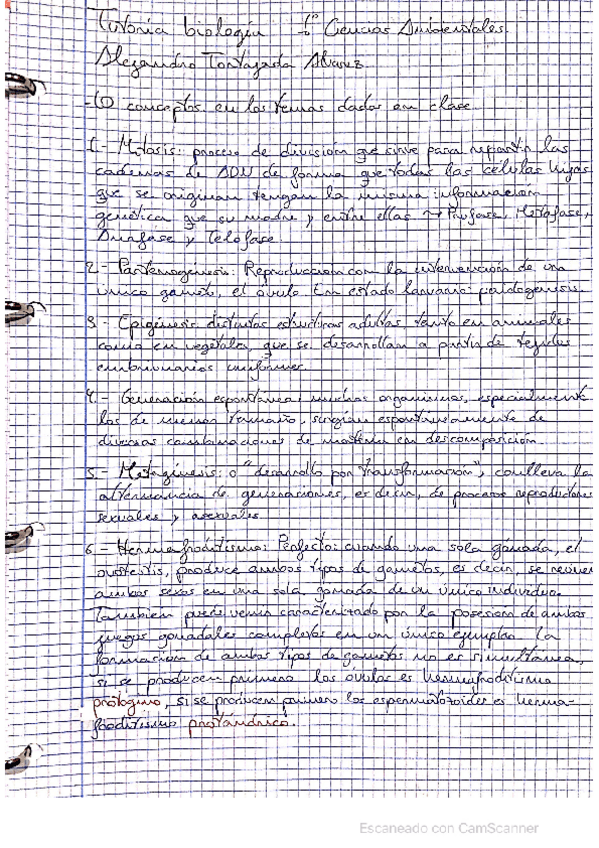 Tutoría biología 1º Ciencias Ambientales.
Alejandro Tortajada Alvarez
10 conceptos en los temas dados en clase.
1.- Mitosis: proceso de división que sirve para repartir las
cadenas de ADN de forma que todas las células hijas
que se originan tengan la misma información
genética que su madre y entre ellas → Profase, Metafase,
Anafase y Telofase.
2.- Partenogenesis: Reproducción con la intervención de un
único gameto, el óvulo. En estado larvario: paidogenesis.
3.- Epigénesis: distintas estructuras adultas, tanto en animales
como en vegetales, que se desarrollan a partir de tejidos
embrionarios uniformes.
4.- Generación espontánea: muchos organismos, especialmente
los de menor tamaño, surgían espontáneamente de
diversas combinaciones de materia en descomposición.
5.- Metagénesis: o "desarrollo por transformación", conlleva la
alternancia de generaciones, es decir, de procesos reproductores
sexuales y asexuales.
6.- Hermafroditismo: Perfecto: cuando una sola gónada, el
ovotestis, produce ambos tipos de gametos, es decir, se reúnen
ambos sexos en una sola gónada de un único individuo.
También puede venir caracterizado por la posesión de ambos
juegos gonadales completos en un único ejemplar. La
formación de ambos tipos de gametos no es simultánea,
si se producen primero los óvulos es hermafroditismo
protogino, si se producen primero los espermatozoides es herma-
froditismo protándrico.
Escaneado con CamScanner